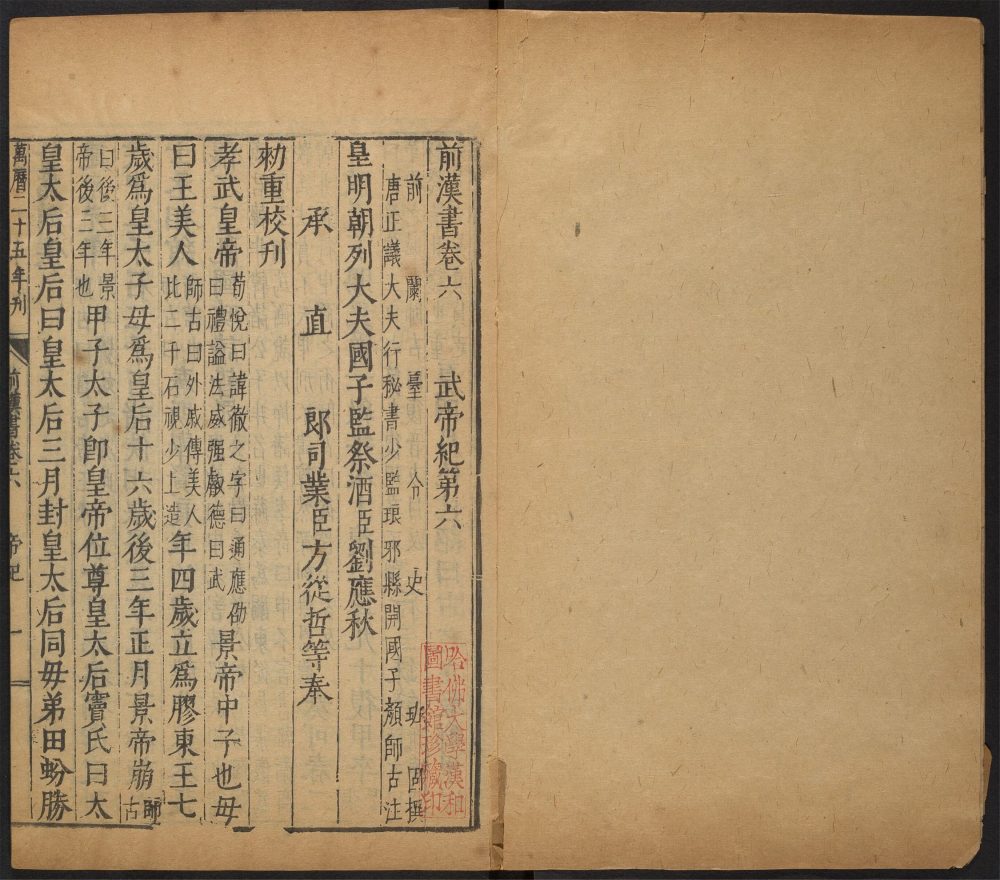 前漢書卷六　武帝紀第六
前　蘭　臺　令　史　班　固撰
唐正議大夫行秘書少監琅邪縣開國子顏師古注
皇明朝列大夫國子監祭酒臣劉應秋
承　直　郎司業臣方從哲等奉
勑重校刊
孝武皇帝荀悅曰諱徹之字曰通應劭曰禮謚法威强叡德曰武景帝中子也母
曰王美人師古曰外戚傳美人比二千石視少上造年四歲立爲膠東王七
歲爲皇太子母爲皇后十六歲後三年正月景帝崩師古
曰後三年景帝後三年也甲子太子卽皇帝位尊皇太后竇氏曰太
皇太后皇后曰皇太后三月封皇太后同母弟田蚡勝
萬曆二十五年刊　前漢書卷六　帝紀　一
哈佛大學漢和
圖書館珍藏印